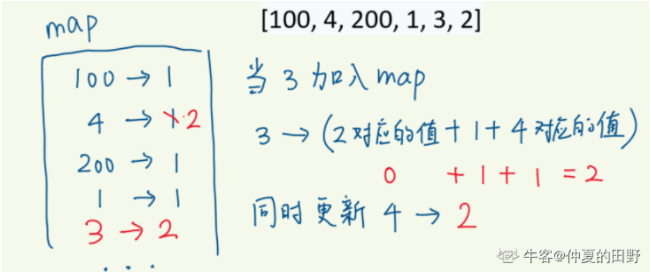 [100, 4, 200, 1, 3, 2]
map
100 → 1
4 → 1 2
200 → 1
1 → 1
3 → 2
...
当 3 加入 map
3 → (2对应的值 + 1 + 4对应的值)
0 + 1 + 1 = 2
同时更新 4 → 2
牛客@仲夏的田野